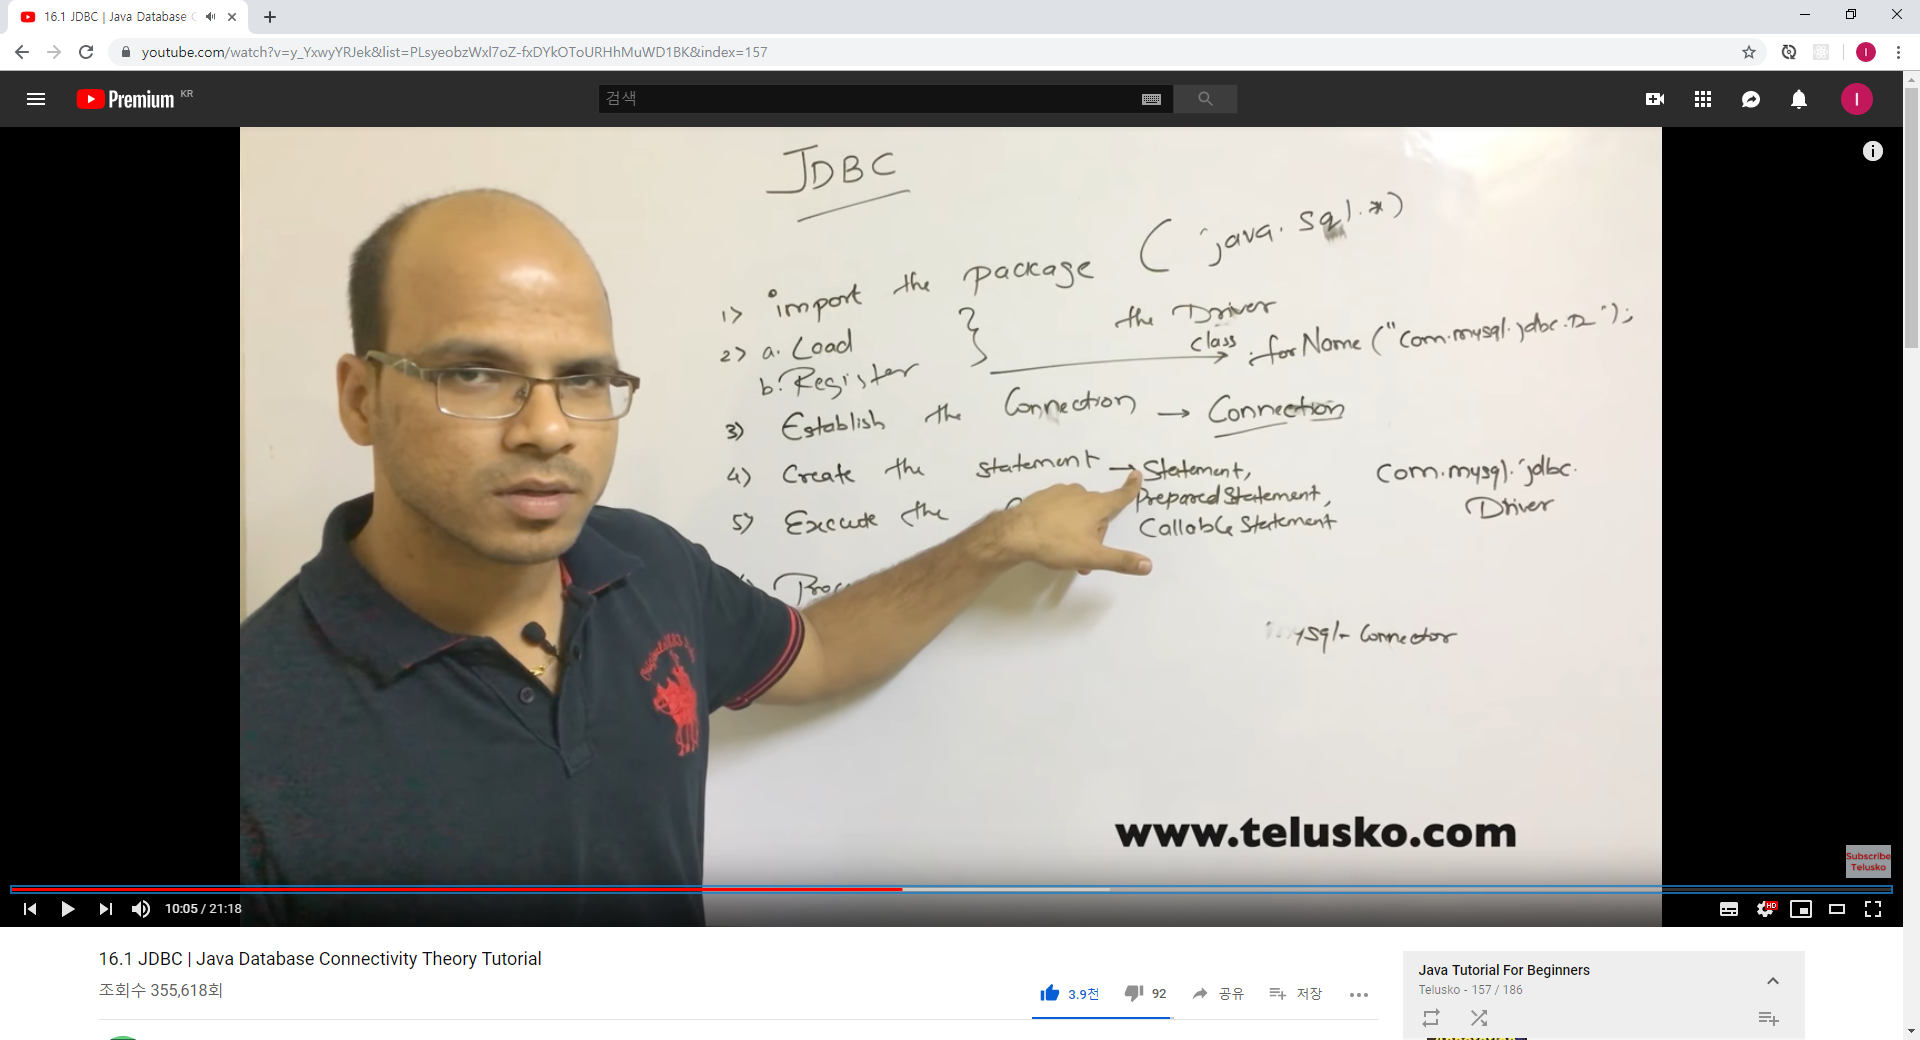 16.1 JDBC | Java Database C
youtube.com/watch?v=y_YxwyYRJek&list=PLsyeobzWxl7oZ-fxDYkOToURHhMuWD1BK&index=157
Premium KR
검색
I
I
JDBC
1) import the package (java.sql.*)
2) a. Load
b. Register
the Driver
class.forName("com.mysql.jdbc.D");
3) Establish the Connection → Connection
4) Create the statement → Statement,
PreparedStatement,
Callable Statement
5) Execute the
com.mysql.jdbc.
Driver
mysql-connector
Original
www.telusko.com
Subscribe
Telusko
10:05 / 21:18
HD
16.1 JDBC | Java Database Connectivity Theory Tutorial
조회수 355,618회
3.9천
92
공유
저장
Java Tutorial For Beginners
Telusko - 157 / 186